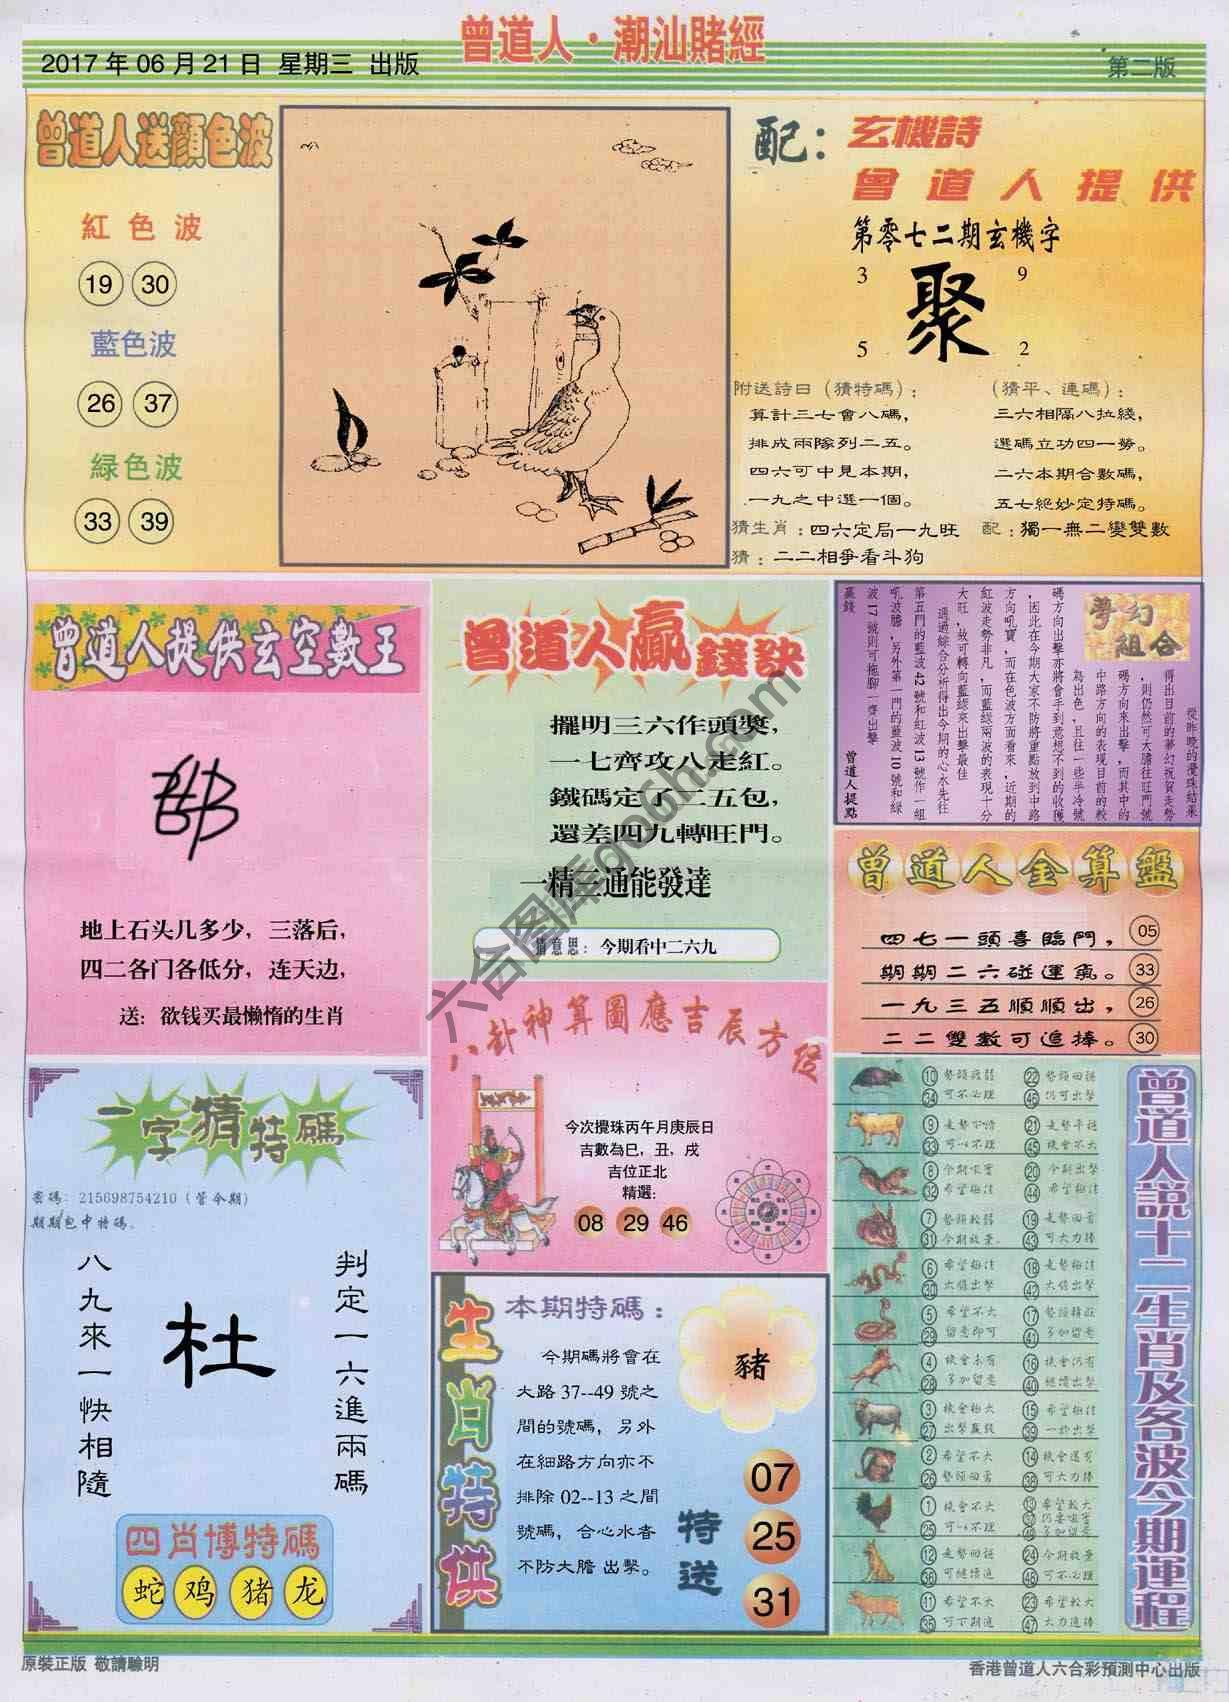 曾道人·潮汕賭經
2017年06月21日 星期三 出版
第二版
曾道人送顏色波
紅色波
19 30
藍色波
26 37
緑色波
33 39
配：玄機詩
曾道人提供
第零七二期玄機字
3 9
聚
5 2
附送詩曰（猜特碼）：
算計三七會八碼，
排成兩隊列二五。
四六可中見本期，
一九之中選一個。
（猜平、連碼）：
三六相隔八拉綫，
選碼立功四一勞。
二六本期合數碼，
五七絕妙定特碼。
猜生肖：四六定局一九旺
配：獨一無二變雙數
猜：二二相爭看斗狗
曾道人提供玄空數王
地上石头几多少，三落后，
四二各门各低分，连天边，
送：欲钱买最懒惰的生肖
曾道人贏錢訣
擺明三六作頭獎，
一七齊攻八走紅。
鐵碼定了二五包，
還差四九轉旺門。
一精三通能發達
猜意思：今期看中二六九
夢幻組合
從昨晚的攪珠結果
得出目前的夢幻祝賀走勢
，則仍然可大膽往旺門號
碼方向來出擊，而其中的
中路方向的表現目前的較
為出色，且往一些半冷號
碼方向出擊亦將會手到意想不到的收獲
，因此在今期大家不防將重點放到中路
方向吼寶，而在色波方面看來，近期的
紅波走勢非凡，而藍綠兩波的表現十分
大旺，故可轉向藍綠來出擊最佳
通過綜合分析得出今期的心水先往
第五門的藍波42號和紅波13號作一組
吼波膽，另外第一門的藍波10號和綠
波17號則可拖腳一齊出擊
贏錢
曾道人提點
曾道人金算盤
四七一頭喜臨門， 05
期期二六碰運氣。 33
一九三五順順出， 26
二二雙數可追捧。 30
八卦神算圖應吉辰方位
今次攪珠丙午月庚辰日
吉數為巳，丑，戌
吉位正北
精選：
08 29 46
一字猜特碼
密碼：215698754210（管今期）
期期包中特碼。
判定一六進兩碼
杜
八九來一快相隨
四肖博特碼
蛇 鸡 猪 龙
生肖特供
本期特碼：
今期碼將會在
大路37--49號之
間的號碼，另外
在細路方向亦不
排除02--13之間
號碼，合心水者
不防大膽出擊。
豬
特送
07
25
31
曾道人說十二生肖及各波今期運程
原裝正版 敬請驗明
香港曾道人六合彩預測中心出版
六合图库gocn.com